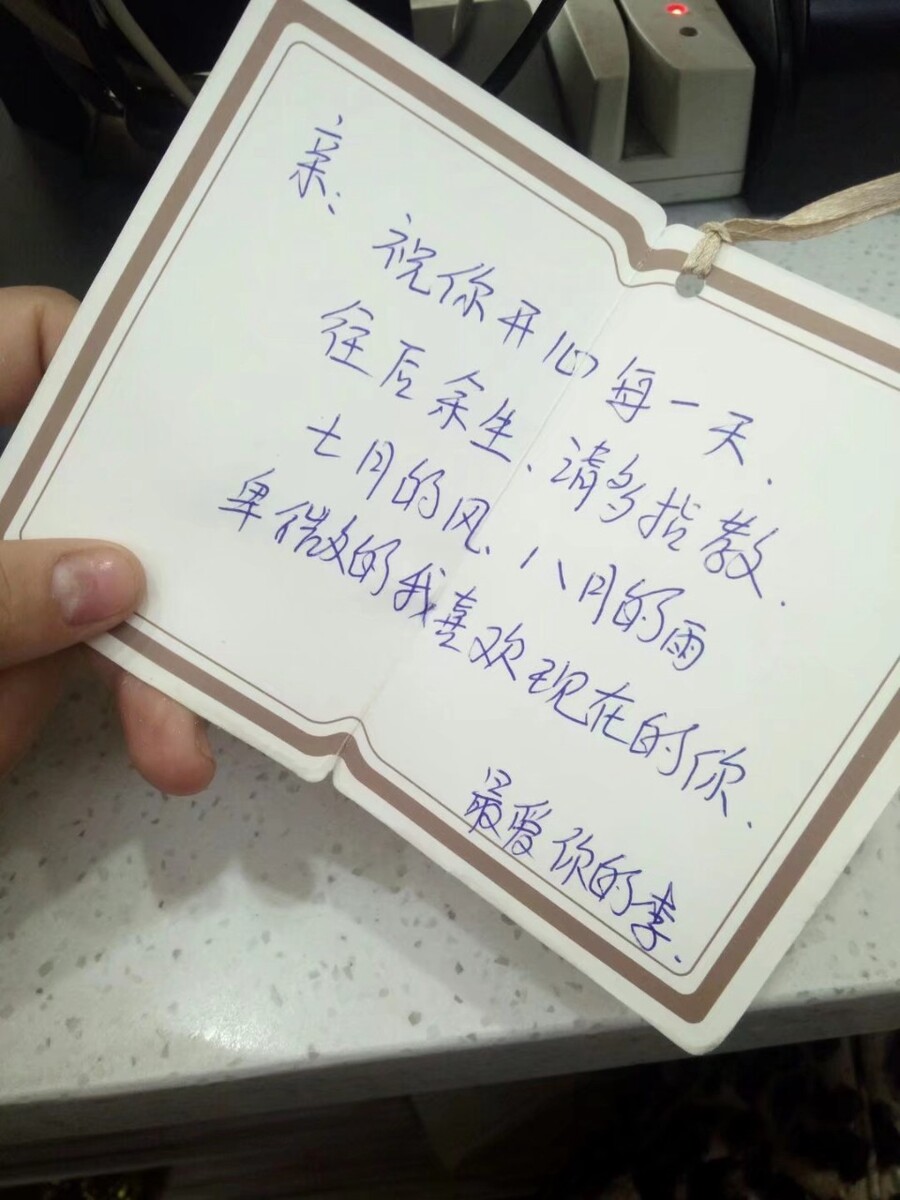 亲:
祝你开心每一天.
往后余生、请多指教.
七月的风、八月的雨
卑微的我喜欢现在的你.
最爱你的李.